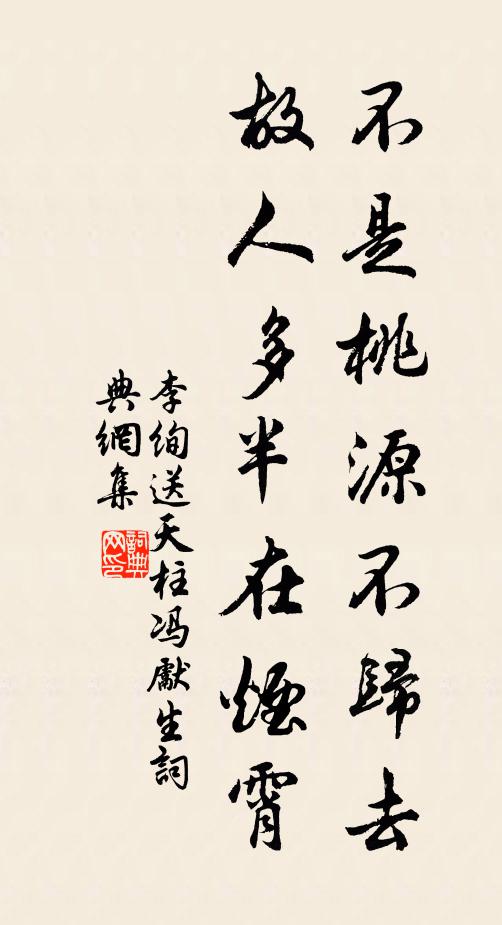 不是桃源不歸去
故人多半在煙霄
李絢送天柱冯獻生詞
典網集
詞典網印